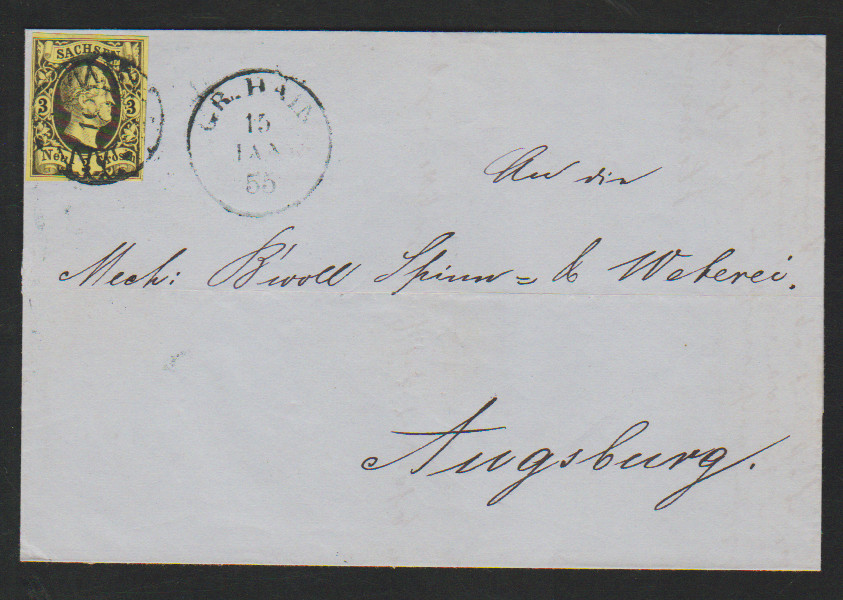 SACHSEN
3 3
Neu-Groschen
GR. HAIN
15
IAN
55
An die
Mech: B'woll Spinn= & Weberei.
Augsburg.